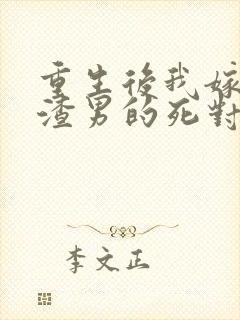 重生後我嫁
渣男的死對
李文正